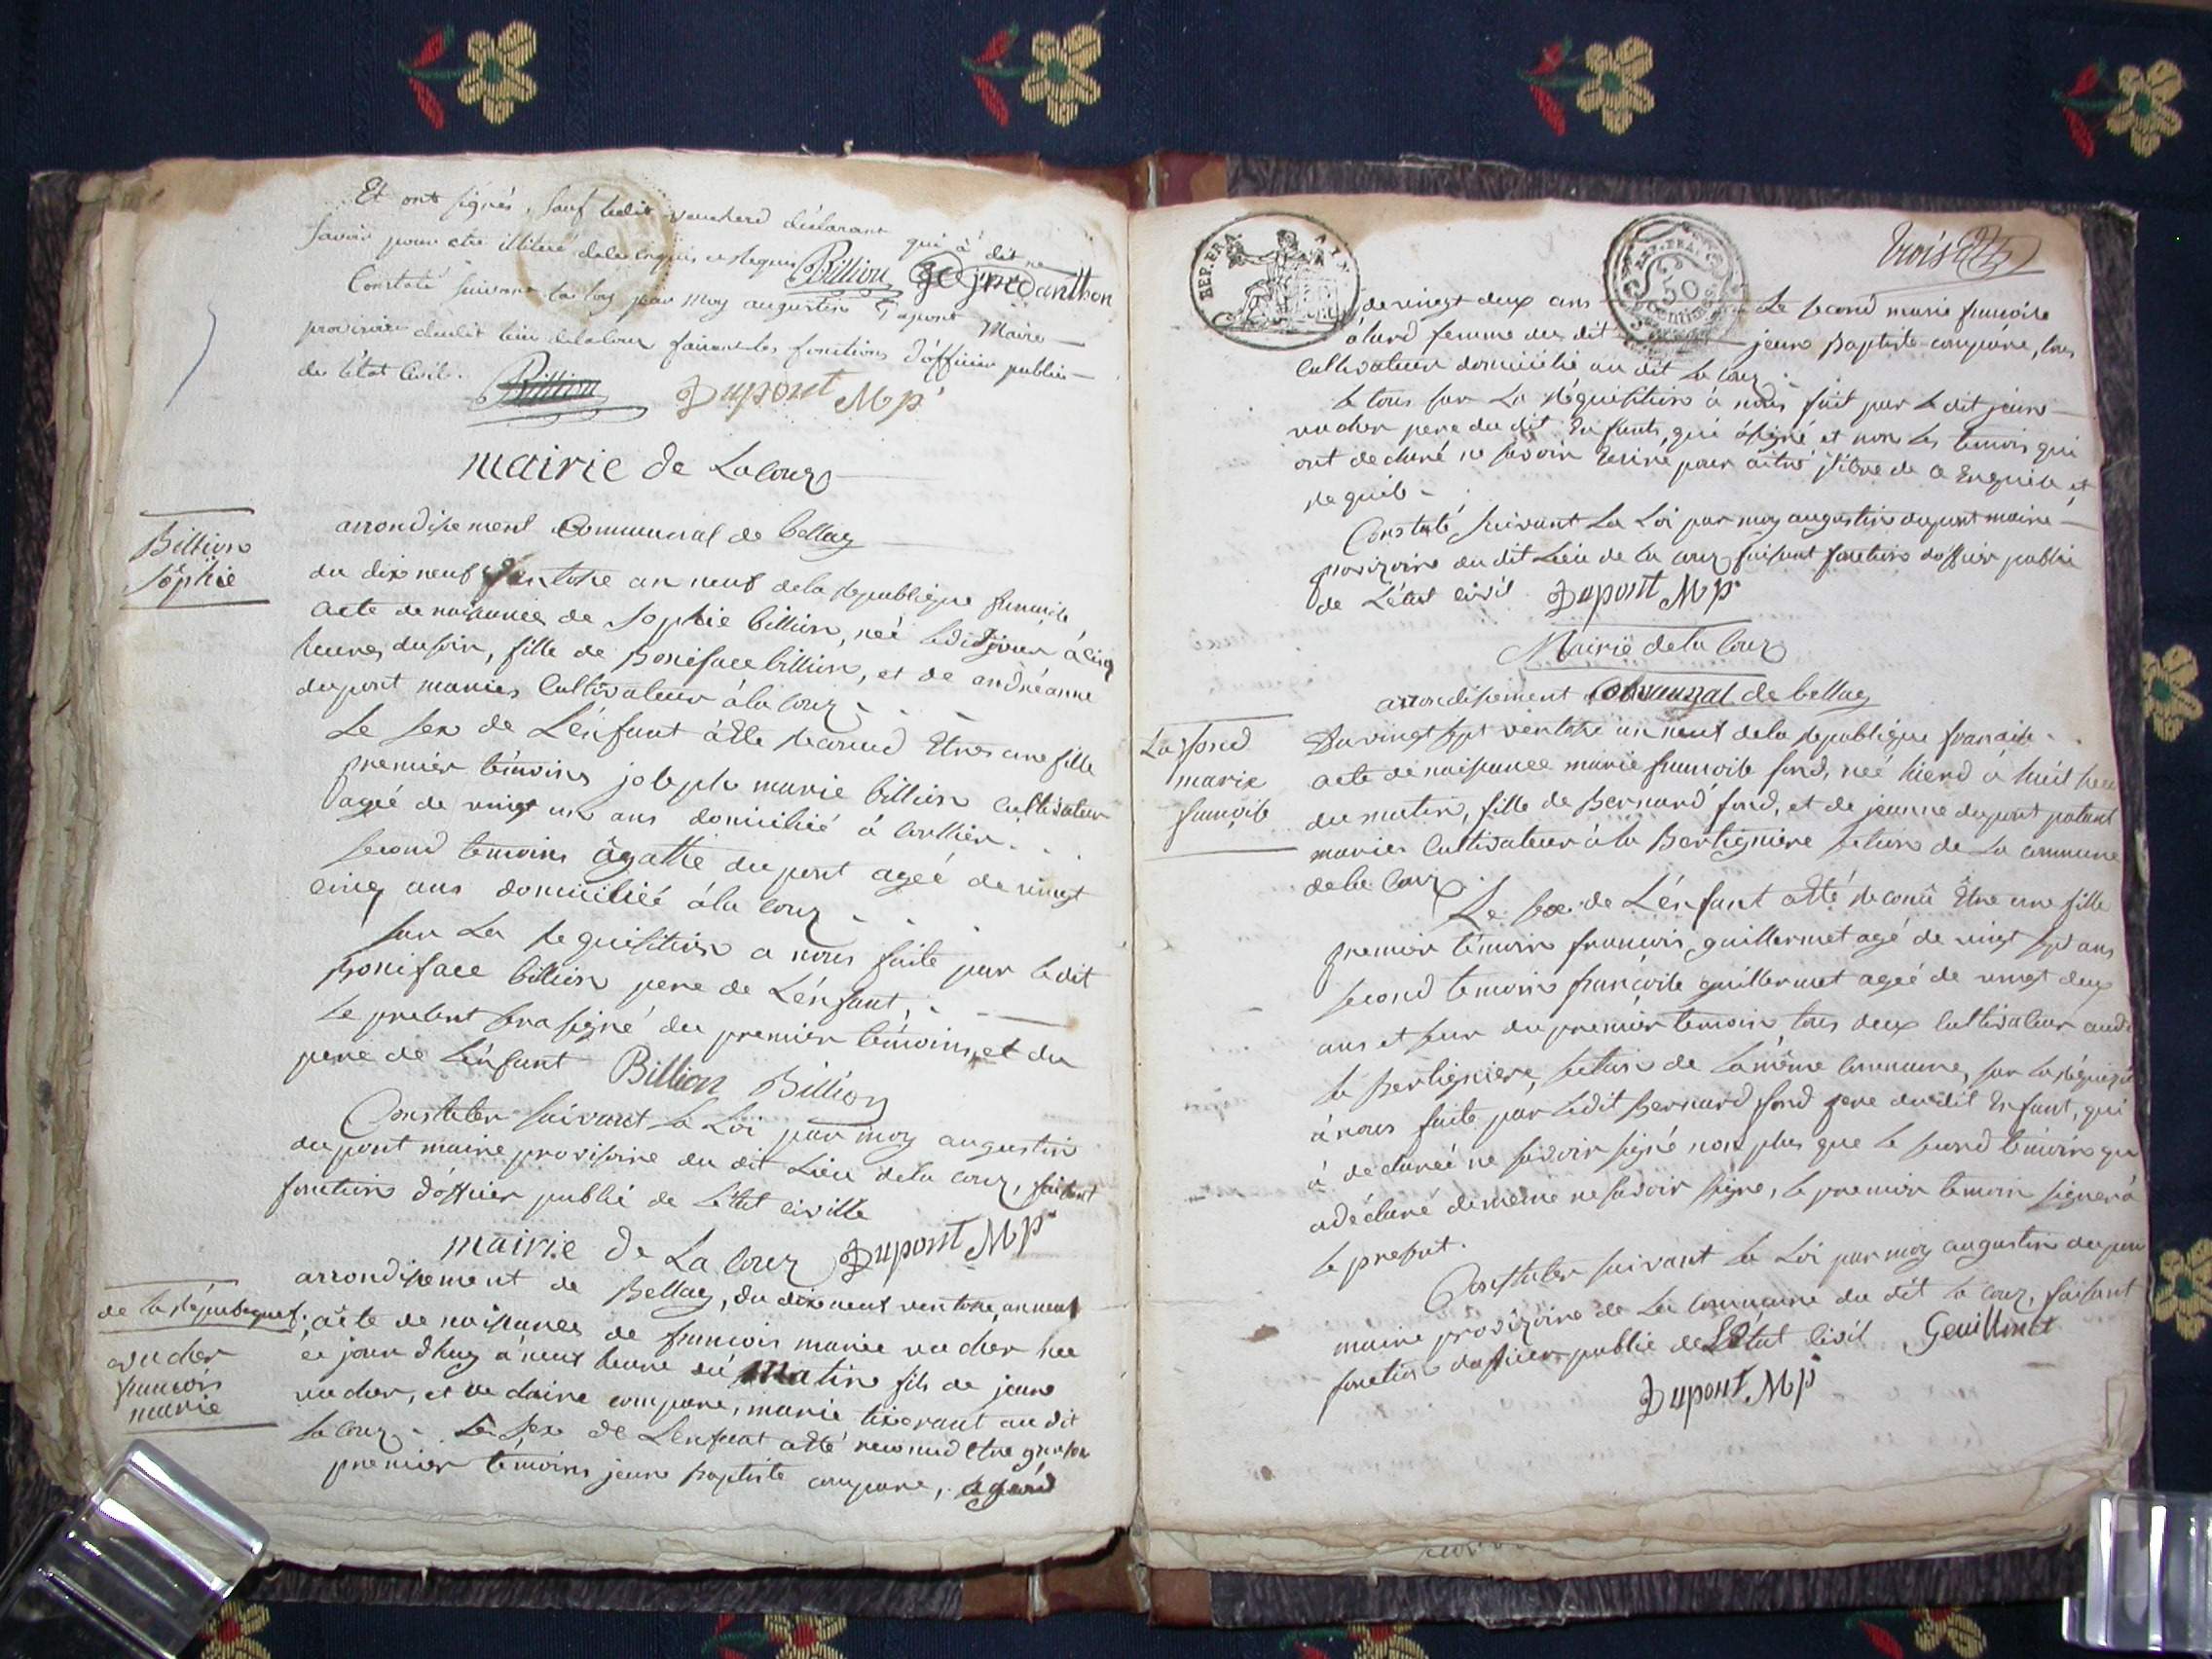 Et ont signés, sauf ledit vaucherd déclarant qui à dit ne
savoir pour être illitéré de le enquis et requis Billion
Constaté suivant la loy par moy augustin Dupont Maire
provisoire dudit lieu delacouz faisant les fonctions d'officier public
de l'état Civil. Billion Dupont M p
mairie de Lacouz
arrondisement Communal de bellay
Billion
Sophie
du dix neuf ventose an neuf dela republique francaise
acte de naissance de Sophie billion, néé ledit jour à cinq
heures du soir, fille de Boniface billion, et de andréanne
dupont mariés Cultivateur à la couz
Le sex de L'énfant à étte reconud Etres une fille
premier témoins joseph marie billion cultivateur
agéé de vingt un ans domicilié à
second temoins âgathe dupont agéé de vingt
cinq ans domiciliéé à la couz
sur La requisition a nous faite par ledit
Boniface billion pere de L'énfant,
le present sera signé du premier témoins, et du
pere de L'énfant Billion Billion
Constater suivant la Loi par moy augustin
dupont maire provisoire du dit Lieu dela couz, faisant
fonction d'officier publié de L'état civille
mairie de La Couz Dupont M p
arrondisement de Bellay, du dix neuf ventose an neuf
de la républiquef. acte de naissance de francois marie vucher née
vucher
francois
marie
ce jour d'huy à neuf heure du Matin fils de jean
vucher, et de claire compare, marié tixerant au dit
la Couz. Le Sex de L'enfant atté reconnud etre garson
premier témoins jean baptiste compare, agéé
trois
REP. FRA. AIN
REP. FRA.
50
Centimes
de vingt deux ans Le second marie francoise
alard femme du dit jean Baptiste compare, tous
Cultivateur domicilié au dit la couz.
le tous sur La réquisition à nous fait par le dit jean
vucher pere du dit Enfants, qui à signé et non les temoin qui
ont declaré ne savoir Ecrire pour aitre jlitere de ce Enquile et
requile
Constaté suivant La Loi par moy augustin dupont maire
provizoire du dit Lieu de la couz faisant fonction d'officier publié
de L'état civil Dupont M p
Mairie dela Couz
arrondisement Communal de bellay
La fond
marie
francoise
Du vingt sept ventose an neuf dela republique francaise
acte de naissance marie francoise fond, néé hierd à huit heu
du matin, fille de Bernard fond, et de jeanne dupont patant
mariés Cultivateur à la Bertigniere section de La commune
dela Couz.
Le sex de L'énfant atté reconû Etre une fille
premier témoin francois guillermet agé de vingt sept ans
second temoin francoise guillermet agéé de vingt deux
ans et seur du premier temoin tous deux cultivateur audi
la Bertigniere, section de La même commune, sur la réquizi
à nous faite par ledit Bernard fond pere dudit Enfant, qui
à declareé ne savoir signé non plus que le second témoin qui
adéclaré de meme ne savoir signe, le premier temoin signera
le present.
Constater suivant la Loi par moy augustin dupon
maire provizoire de La commune du dit la couz, faisant
fonction d'officier publié de L'état Civil Geuillmet
Dupont M p